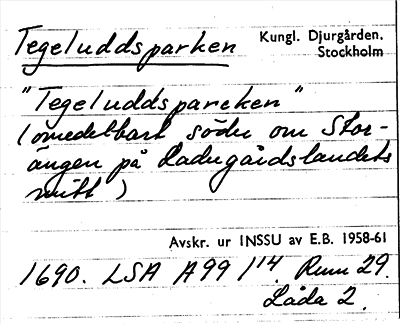 Tegeluddsparken
Kungl. Djurgården.
Stockholm
"Tegeluddsparcken"
(omedelbart söder om Stor-
ängen på Ladugårdslandets
mitt)
Avskr. ur INSSU av E.B. 1958-61
1690. LSA A99 1/14. Rum 29.
Låda 2.